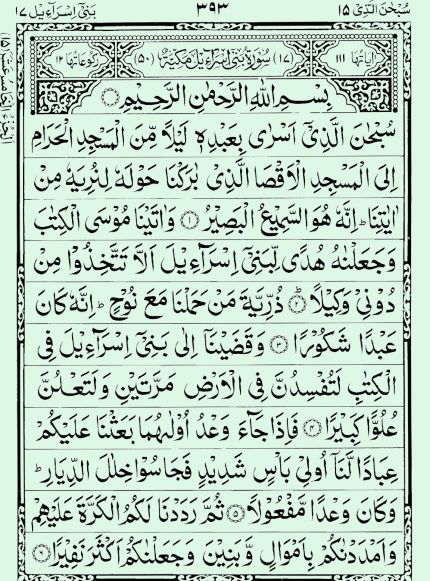 سُبْحٰنَ الَّذِیْۤ ۱۵ ۳۹۳ بَنِیْۤ اِسْرَآءِیْل ۱۷
اٰیَاتُهَا ۱۱۱ (۱۷) سُوْرَةُ بَنِیْۤ اِسْرَآءِیْلَ مَكِّیَّةٌ (۵۰) رُكُوْعَاتُهَا ۱۲
بِسْمِ اللّٰهِ الرَّحْمٰنِ الرَّحِیْمِ
سُبْحٰنَ الَّذِیْۤ اَسْرٰی بِعَبْدِهٖ لَیْلًا مِّنَ الْمَسْجِدِ الْحَرَامِ
اِلَی الْمَسْجِدِ الْاَقْصَا الَّذِیْ بٰرَكْنَا حَوْلَهٗ لِنُرِیَهٗ مِنْ
اٰیٰتِنَا ؕ اِنَّهٗ هُوَ السَّمِیْعُ الْبَصِیْرُ ۝۱ وَاٰتَیْنَا مُوْسَی الْكِتٰبَ
وَجَعَلْنٰهُ هُدًی لِّبَنِیْۤ اِسْرَآءِیْلَ اَلَّا تَتَّخِذُوْا مِنْ
دُوْنِیْ وَكِیْلًا ۝۲ ذُرِّیَّةَ مَنْ حَمَلْنَا مَعَ نُوْحٍ ؕ اِنَّهٗ كَانَ
عَبْدًا شَكُوْرًا ۝۳ وَقَضَیْنَاۤ اِلٰی بَنِیْۤ اِسْرَآءِیْلَ فِی
الْكِتٰبِ لَتُفْسِدُنَّ فِی الْاَرْضِ مَرَّتَیْنِ وَلَتَعْلُنَّ
عُلُوًّا كَبِیْرًا ۝۴ فَاِذَا جَآءَ وَعْدُ اُوْلٰىهُمَا بَعَثْنَا عَلَیْكُمْ
عِبَادًا لَّنَاۤ اُولِیْ بَاْسٍ شَدِیْدٍ فَجَاسُوْا خِلٰلَ الدِّیَارِ ؕ
وَكَانَ وَعْدًا مَّفْعُوْلًا ۝۵ ثُمَّ رَدَدْنَا لَكُمُ الْكَرَّةَ عَلَیْهِمْ
وَاَمْدَدْنٰكُمْ بِاَمْوَالٍ وَّبَنِیْنَ وَجَعَلْنٰكُمْ اَكْثَرَ نَفِیْرًا ۝۶